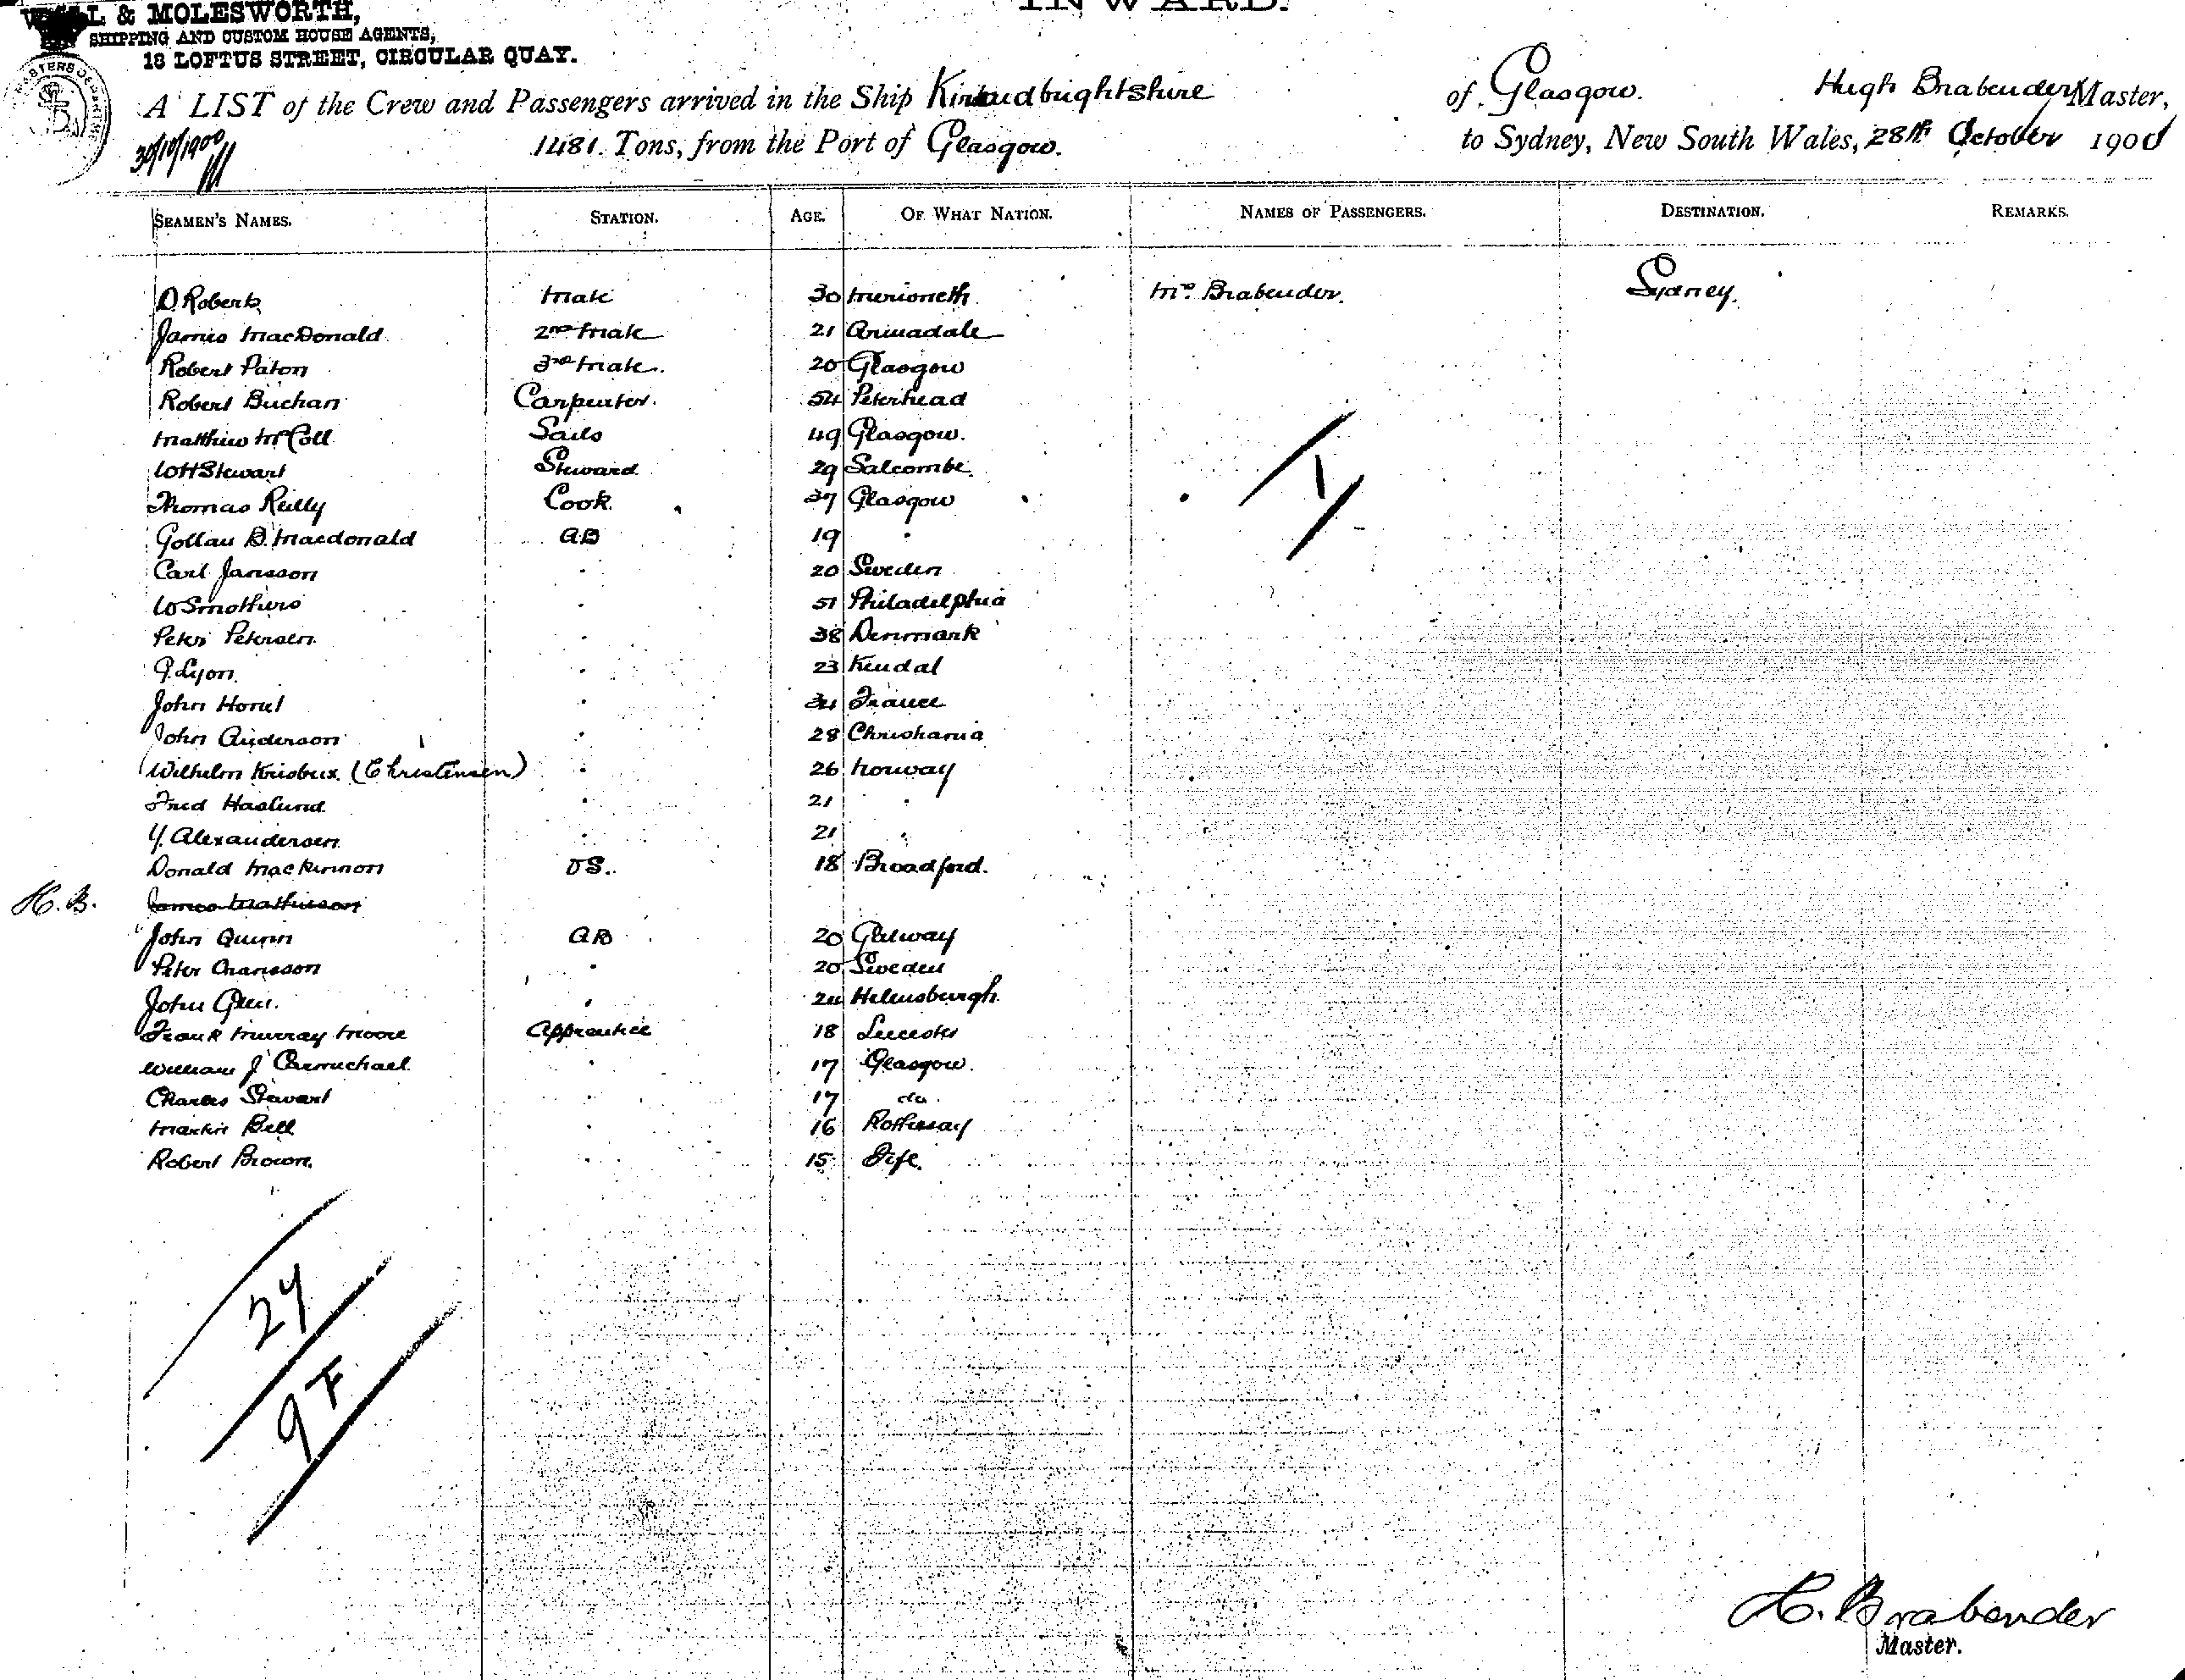 & MOLESWORTH,
SHIPPING AND CUSTOM HOUSE AGENTS,
18 LOFTUS STREET, CIRCULAR QUAY.
INWARD.
A LIST of the Crew and Passengers arrived in the Ship Kirkcudbrightshire of Glasgow. Hugh Brabender Master,
30/10/1900 1481 Tons, from the Port of Glasgow. to Sydney, New South Wales, 28th October 1900
SEAMEN'S NAMES. STATION. AGE. OF WHAT NATION. NAMES OF PASSENGERS. DESTINATION. REMARKS.
D. Roberts Mate 30 Merioneth Mrs. Brabender. Sydney.
James MacDonald 2nd Mate 21 Armadale
Robert Paton 3rd Mate. 20 Glasgow
Robert Buchan Carpenter. 54 Peterhead
Matthew McColl Sails 49 Glasgow.
W H Stewart Steward 29 Salcombe.
Thomas Reilly Cook. 37 Glasgow
Gollan D. Macdonald AB 19 "
Carl Jansson " 20 Sweden
W Smothers " 51 Philadelphia
Peter Petersen " 38 Denmark
G. Lyon. " 23 Kendal
John Hornl " 34 France
John Anderson " 28 Christiania
Wilhelm (Christensen) " 26 Norway
Fred Haslund " 21 "
Y. Alexandersen " 21 "
Donald MacKinnon OS. 18 Broadford.
H.B. James Mathieson
John Quinn AB 20 Galway
Peter " 20 Sweden
John Glen. " 24 Helensburgh.
Frank Murray Moore Apprentice 18 Leicester
William J Carmichael " 17 Glasgow.
Charles Stewart " 17 do.
Martin Bell " 16 Rothesay
Robert Brown. " 15 Fife.
1
27
9 F
H. Brabender
Master.